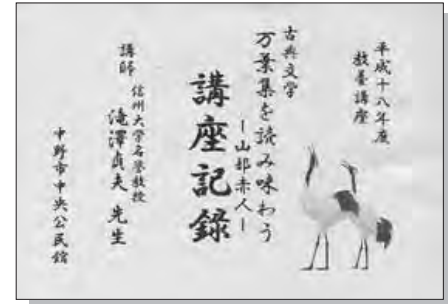 平成十八年度
教養講座
古典文学
万葉集を読み味わう
ー山部赤人ー
講座記録
講師
信州大学名誉教授
滝澤貞夫 先生
中野市中央公民館